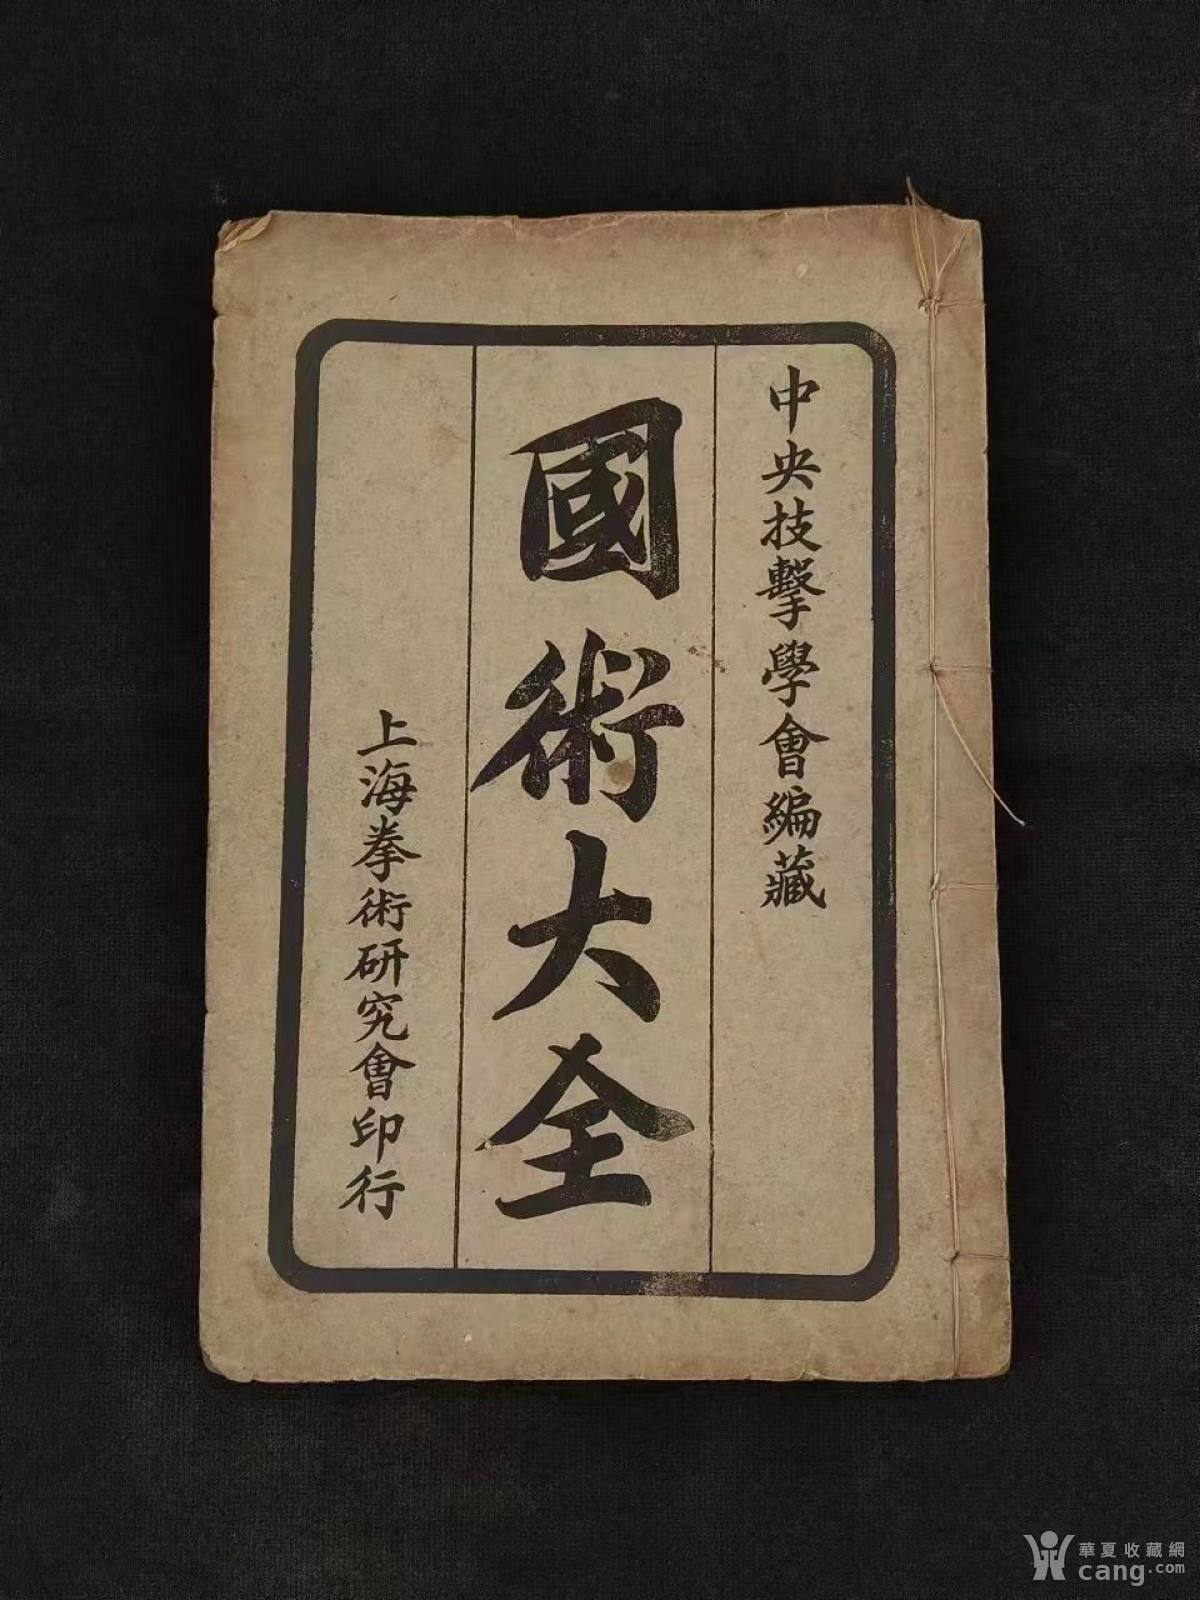 中央技擊學會編藏
國術大全
上海拳術研究會印行
華夏收藏網
cang.com